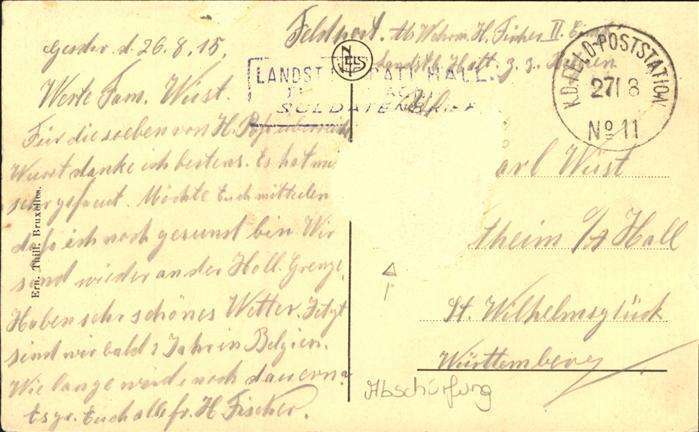 Feldpost. Abs. Wehrm. H. Fischer II.
Landst.
LANDST BATL HALL
SOLDATENBRIEF
NELS
K.D. FELD-POSTSTATION
27/8
No 11
d. 26.8.15.
Werte Fam. Wüst.
Für die soeben von H.
Wurst danke ich bestens. Es hat mi
sehr gefreut. Möchte Euch mitteilen
daß ich noch gesund bin. Wir
sind wieder an der Holl. Grenze.
Haben sehr schönes Wetter. Jetzt
sind wir bald 1 Jahr in Belgien.
Wie lange wirds noch dauern
Es gr. Euch alle fr. H. Fischer.
arl Wüst
theim a/H Hall
St. Wilhelmsglück
Württemberg
Abschürfung
Ern. Thill, Bruxelles.